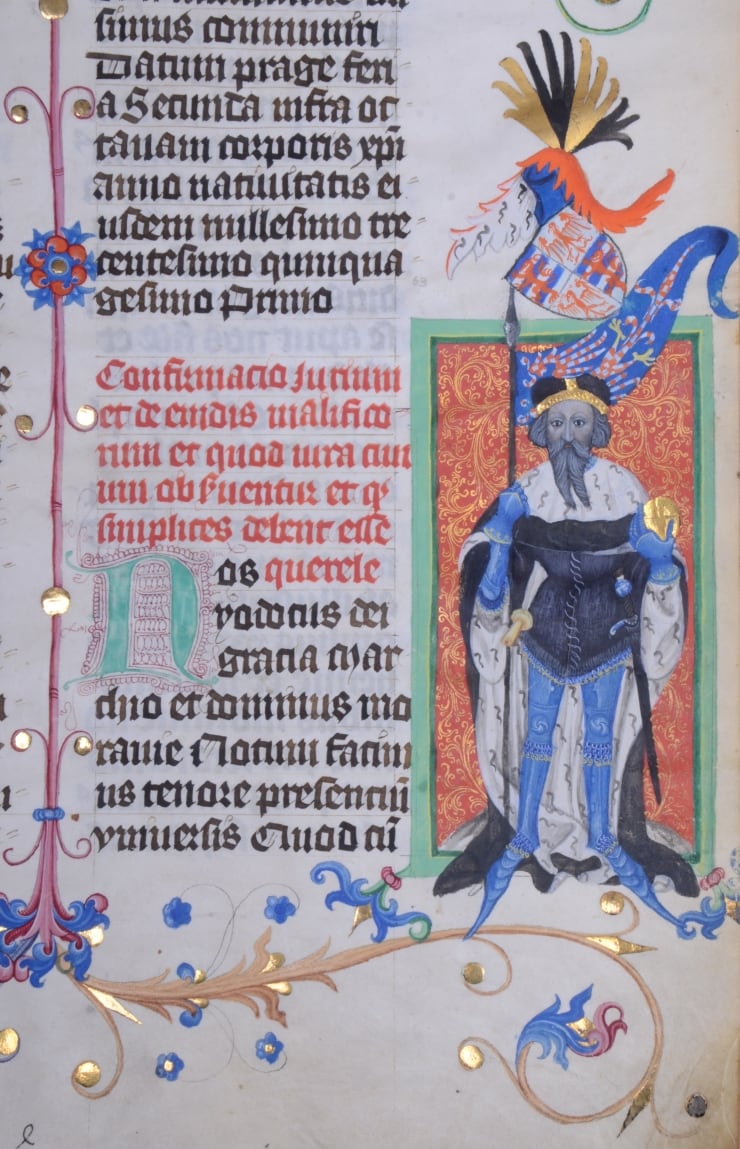 simus communiri
Datum prage feri
a Secunda infra oc
tauam corporis xp̄i
anno natiuitatis ei
usdem millesimo tre
centesimo quinqua
gesimo Primo
Confirmacio Jurium
et de emdis malifico
rum et quod iura ciui
um obẜuentur et qͥ
simplices debent esse
querele
Nos
yodocus dei
gracia mar
chio et dominus mo
rauie Notum facim
us tenore presenciū
vniuersis Quod cū
63